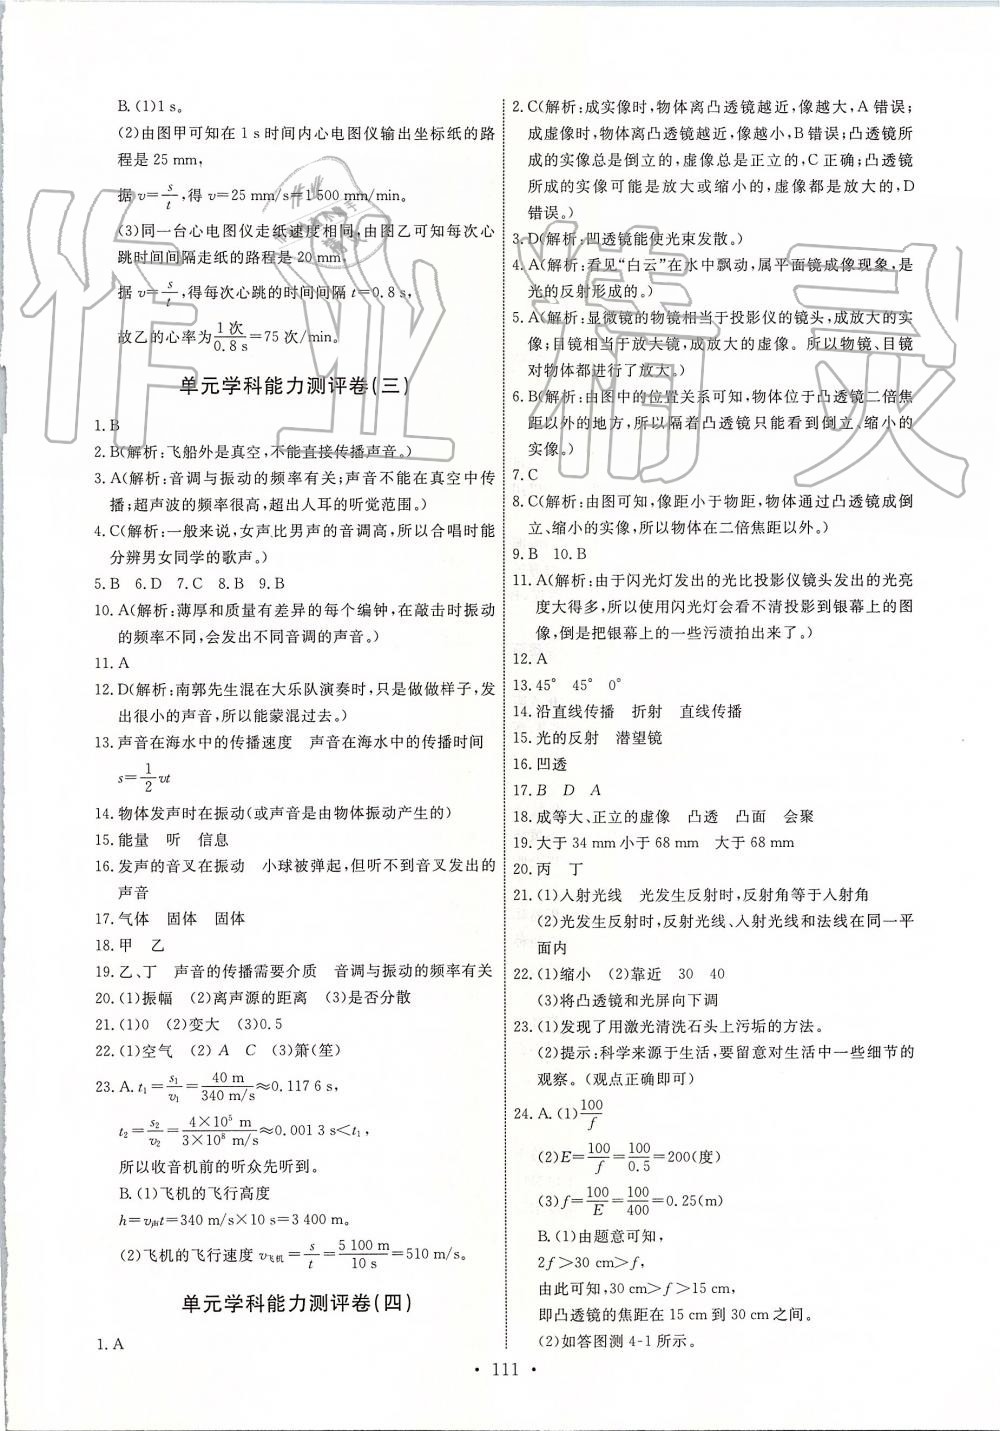 B.(1)1 s。
(2)由图甲可知在 1 s 时间内心电图仪输出坐标纸的路
程是 25 mm,
据 v=s/t,得 v=25 mm/s=1 500 mm/min。
(3)同一台心电图仪走纸速度相同,由图乙可知每次心
跳时间间隔走纸的路程是 20 mm,
据 v=s/t,得每次心跳的时间间隔 t=0.8 s,
故乙的心率为1 次/0.8 s=75 次/min。
单元学科能力测评卷(三)
1. B
2. B(解析:飞船外是真空,不能直接传播声音。)
3. A(解析:音调与振动的频率有关;声音不能在真空中传
播;超声波的频率很高,超出人耳的听觉范围。)
4. C(解析:一般来说,女声比男声的音调高,所以合唱时能
分辨男女同学的歌声。)
5. B 6. D 7. C 8. B 9. B
10. A(解析:薄厚和质量有差异的每个编钟,在敲击时振动
的频率不同,会发出不同音调的声音。)
11. A
12. D(解析:南郭先生混在大乐队演奏时,只是做做样子,发
出很小的声音,所以能蒙混过去。)
13. 声音在海水中的传播速度 声音在海水中的传播时间
s=1/2 vt
14. 物体发声时在振动(或声音是由物体振动产生的)
15. 能量 听 信息
16. 发声的音叉在振动 小球被弹起,但听不到音叉发出的
声音
17. 气体 固体 固体
18. 甲 乙
19. 乙、丁 声音的传播需要介质 音调与振动的频率有关
20. (1)振幅 (2)离声源的距离 (3)是否分散
21. (1)0 (2)变大 (3)0.5
22. (1)空气 (2) A C (3)箫(笙)
23. A. t₁=s₁/v₁=40 m/340 m/s≈0.117 6 s,
t₂=s₂/v₂=4×10⁵ m/3×10⁸ m/s≈0.001 3 s<t₁,
所以收音机前的听众先听到。
B.(1)飞机的飞行高度
h=v声t=340 m/s×10 s=3 400 m。
(2)飞机的飞行速度 v飞机=s/t=5 100 m/10 s=510 m/s。
单元学科能力测评卷(四)
1. A
2. C(解析:成实像时,物体离凸透镜越近,像越大,A 错误;
成虚像时,物体离凸透镜越近,像越小,B 错误;凸透镜所
成的实像总是倒立的,虚像总是正立的,C 正确;凸透镜
所成的实像可能是放大或缩小的,虚像都是放大的,D
错误。)
3. D(解析:凹透镜能使光束发散。)
4. A(解析:看见“白云”在水中飘动,属平面镜成像现象,是
光的反射形成的。)
5. A(解析:显微镜的物镜相当于投影仪的镜头,成放大的实
像;目镜相当于放大镜,成放大的虚像。所以物镜、目镜
对物体都进行了放大。)
6. B(解析:由图中的位置关系可知,物体位于凸透镜二倍焦
距以外的地方;所以隔着凸透镜只能看到倒立、缩小的
实像。)
7. C
8. C(解析:由图可知,像距小于物距,物体通过凸透镜成倒
立、缩小的实像,所以物体在二倍焦距以外。)
9. B 10. B
11. A(解析:由于闪光灯发出的光比投影仪镜头发出的光亮
度大得多,所以使用闪光灯会看不清投影到银幕上的图
像,倒是把银幕上的一些污渍拍出来了。)
12. A
13. 45° 45° 0°
14. 沿直线传播 折射 直线传播
15. 光的反射 潜望镜
16. 凹透
17. B D A
18. 成等大、正立的虚像 凸透 凸面 会聚
19. 大于 34 mm小于 68 mm 大于 68 mm
20. 丙 丁
21. (1)入射光线 光发生反射时,反射角等于入射角
(2)光发生反射时,反射光线、入射光线和法线在同一平
面内
22. (1)缩小 (2)靠近 30 40
(3)将凸透镜和光屏向下调
23. (1)发现了用激光清洗石头上污垢的方法。
(2)提示:科学来源于生活,要留意对生活中一些细节的
观察。(观点正确即可)
24. A. (1)100/f
(2)E=100/f=100/0.5=200(度)
(3)f=100/E=100/400=0.25(m)
B.(1)由题意可知,
2f>30 cm>f,
由此可知,30 cm>f>15 cm,
即凸透镜的焦距在 15 cm 到 30 cm 之间。
(2)如答图测 4-1 所示。
• 111 •
作业精灵